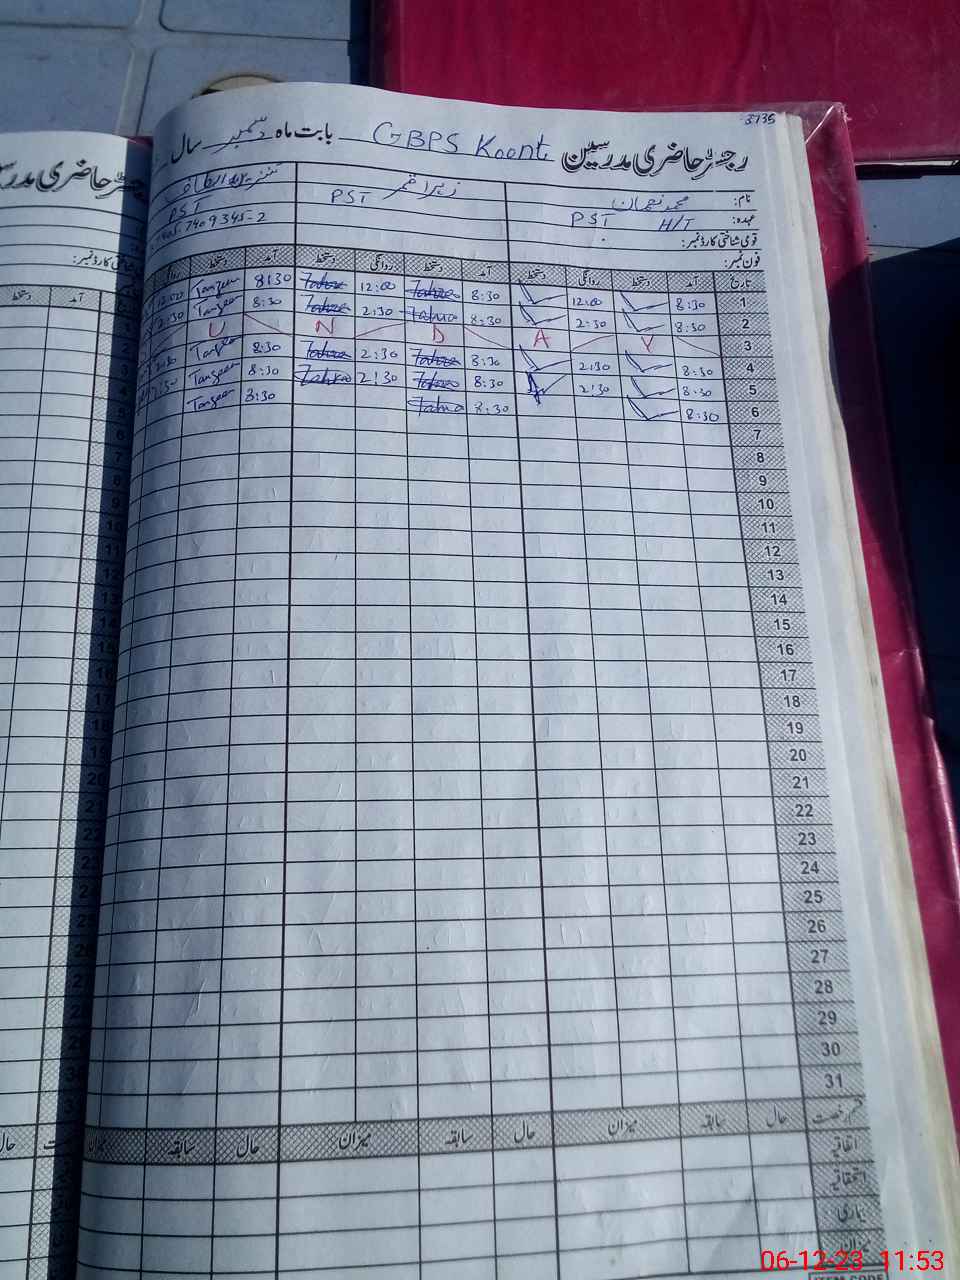 3735
رجسٹر حاضری مدرسین GBPS Koont بابت ماہ دسمبر سال
نام: محمد نعمان زہرا قمر
عہدہ: PST H/T PST PST
قومی شناختی کارڈ نمبر:
فون نمبر:
تاریخ آمد دستخط روانگی دستخط آمد دستخط روانگی دستخط آمد دستخط
1 8:30 12:00 8:30 12:00 8:30 Tanzeer 12:00
2 8:30 2:30 Zahra 8:30 2:30 8:30 Tanzeer 2:30
3 Y A D N U
4 8:30 2:30 8:30 2:30 8:30 2:30
5 8:30 2:30 8:30 2:30 Zahra 8:30 Tanzeer 2:30
6 8:30 8:30 Zahra 8:30 Tanzeer
7
8
9
10
11
12
13
14
15
16
17
18
19
20
21
22
23
24
25
26
27
28
29
30
31
قسم رخصت حال سابقہ میزان حال سابقہ میزان حال سابقہ میزان
اتفاقیہ
استحقاقیہ
بیماری
میزان
06-12-23 11:53